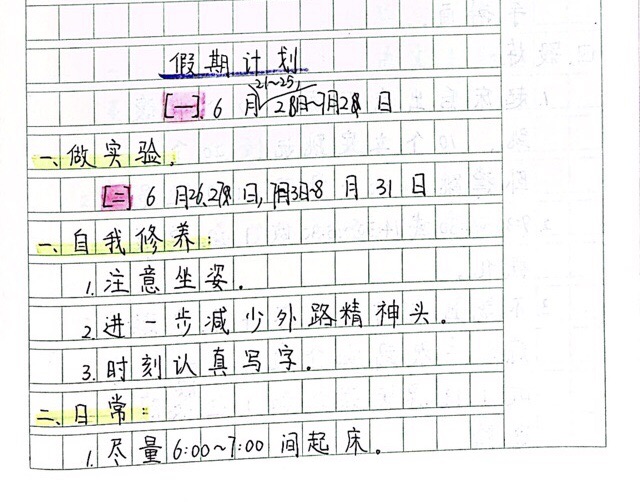 假期计划
21~25,
[一] 6月28日~7月28日
一、做实验。
[二] 6月26、27日,7月3日~8月31日
一、自我修养:
1.注意坐姿。
2.进一步减少外路精神头。
3.时刻认真写字。
二、日常:
1.尽量6:00~7:00间起床。